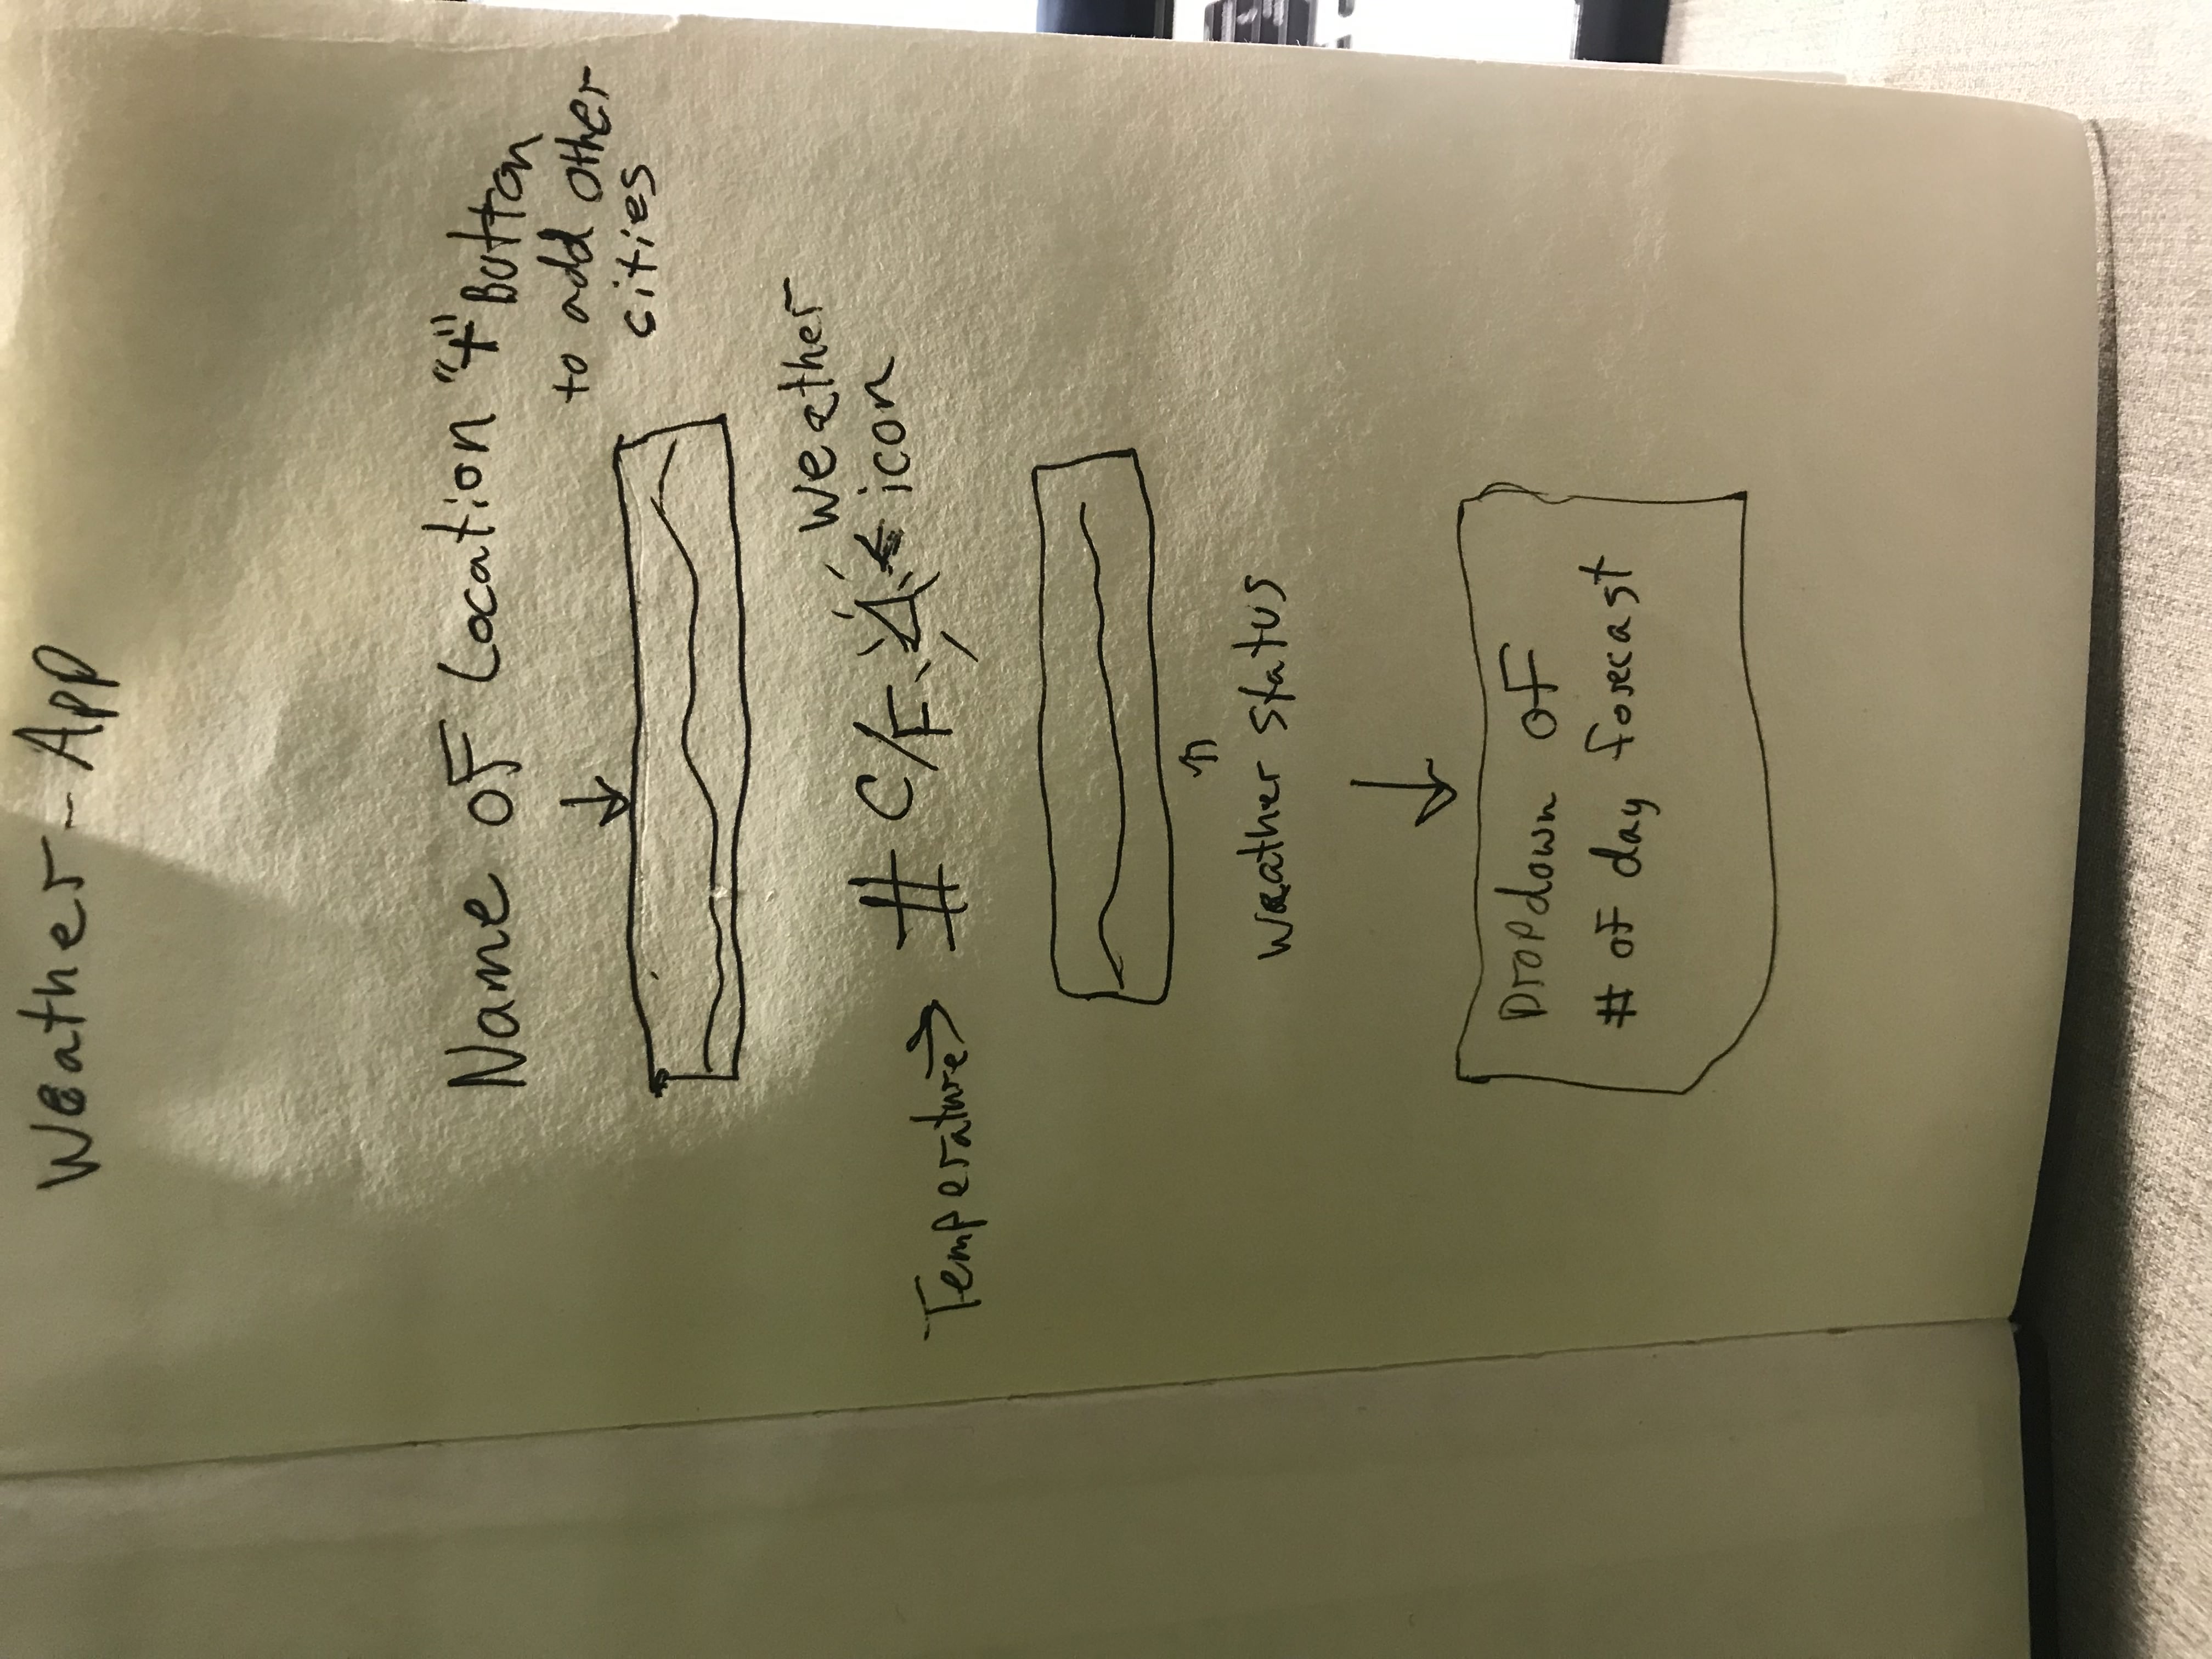 Weather-App
Name of Location "+" Button
to add other
cities
Weather
icon
Temperature # C/F
weather status
Dropdown of
# of day forecast